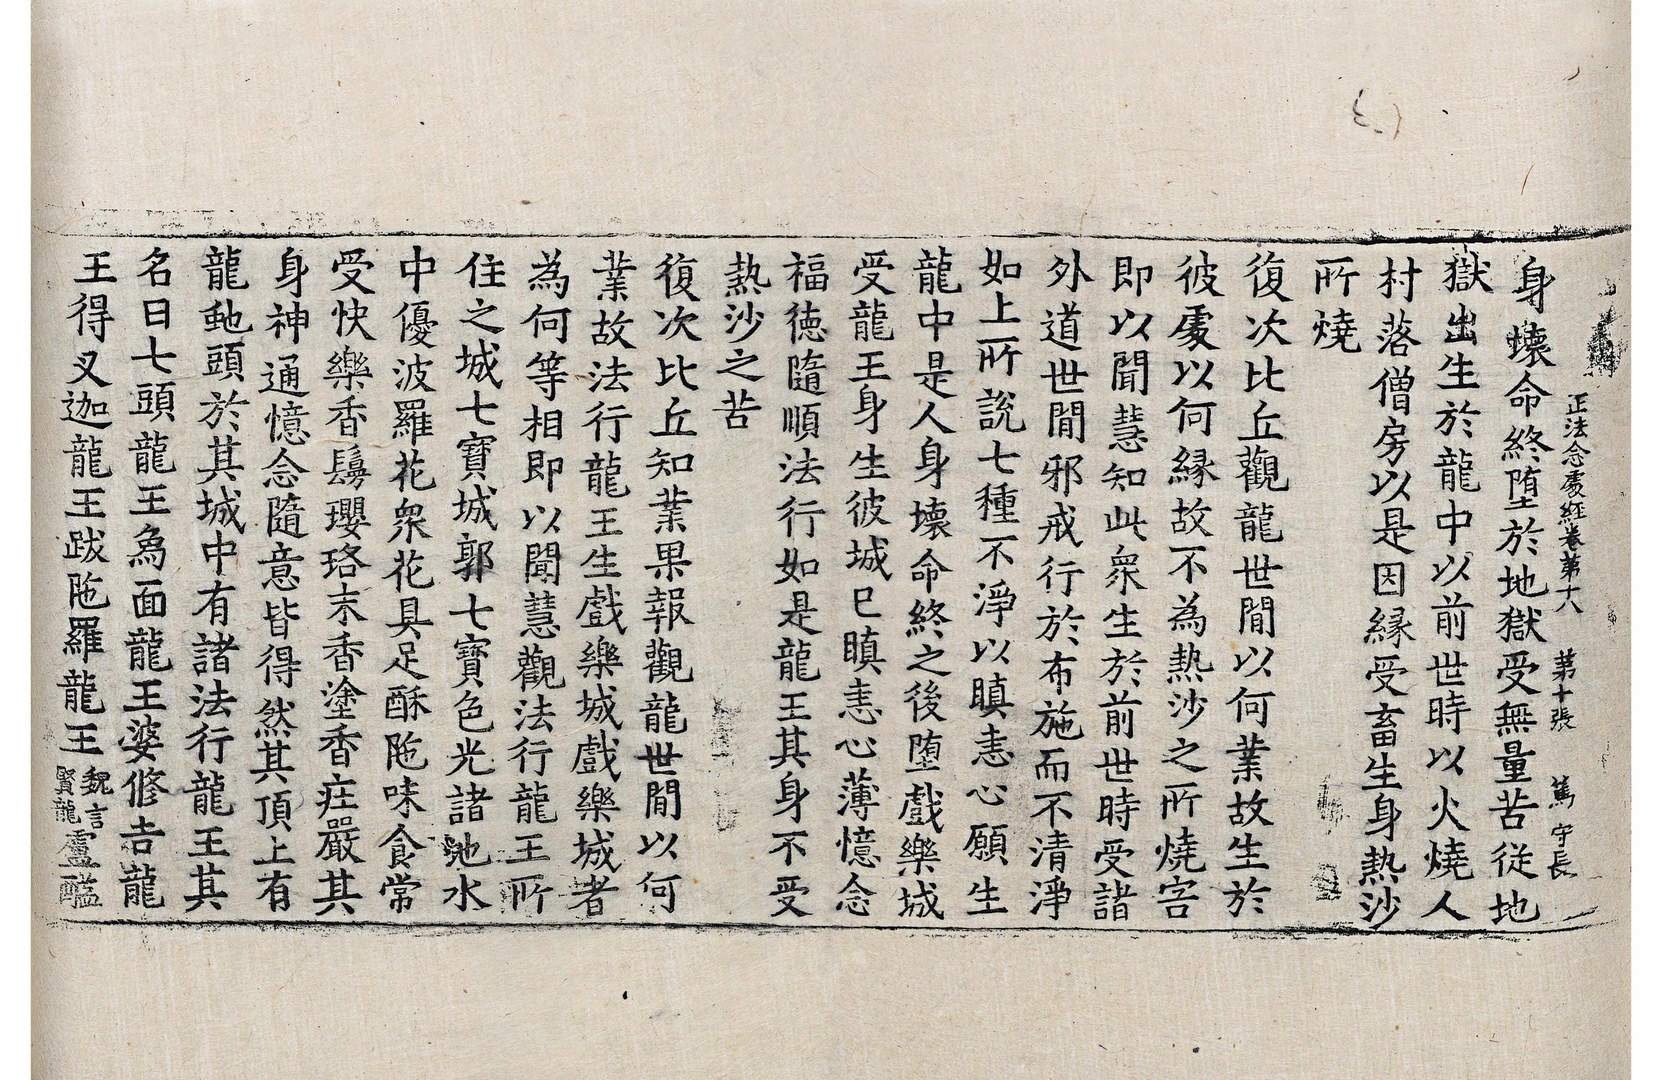 正法念處経卷第十八 第十張 萬守長
身壞命終堕於地獄受無量苦従地
獄出生於龍中以前世時以火燒人
村落僧房以是因縁受畜生身熱沙
所燒
復次比丘觀龍世間以何業故生於
彼處以何縁故不為熱沙之所燒害
即以聞慧知此衆生於前世時受諸
外道世間邪戒行於布施而不清淨
如上所說七種不淨以瞋恚心願生
龍中是人身壞命終之後堕戲樂城
受龍王身生彼城已瞋恚心薄憶念
福德隨順法行如是龍王其身不受
熱沙之苦
復次比丘知業果報觀龍世間以何
業故法行龍王生戲樂城戲樂城者
為何等相即以聞慧觀法行龍王所
住之城七寶城郭七寶色光諸池水
中優波羅花衆花具足酥陁味食常
受快樂香鬘瓔珞末香塗香荘嚴其
身神通憶念隨意皆得然其頂上有
龍虵頭於其城中有諸法行龍王其
名曰七頭龍王為面龍王婆修吉龍
王得叉迦龍王跋陁羅龍王魏言賢龍盧醯